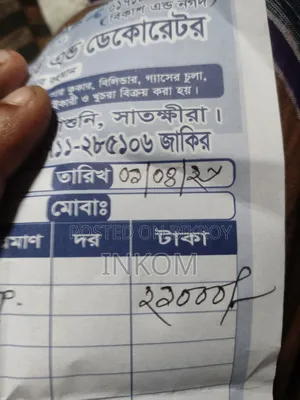 (বিকাশ এন্ড নগদ)
এন্ড ডেকোরেটর
কুকার, বিলিন্ডার, গ্যাসের চুলা,
পাইকারী ও খুচরা বিক্রয় করা হয়।
সাতক্ষীরা।
১১-২৮৫১০৬ জাকির
তারিখ ০৯/০৪/২৫
মোবাঃ
দর টাকা
POSTED ON BIKROY
INKOM
২৯০০০/-